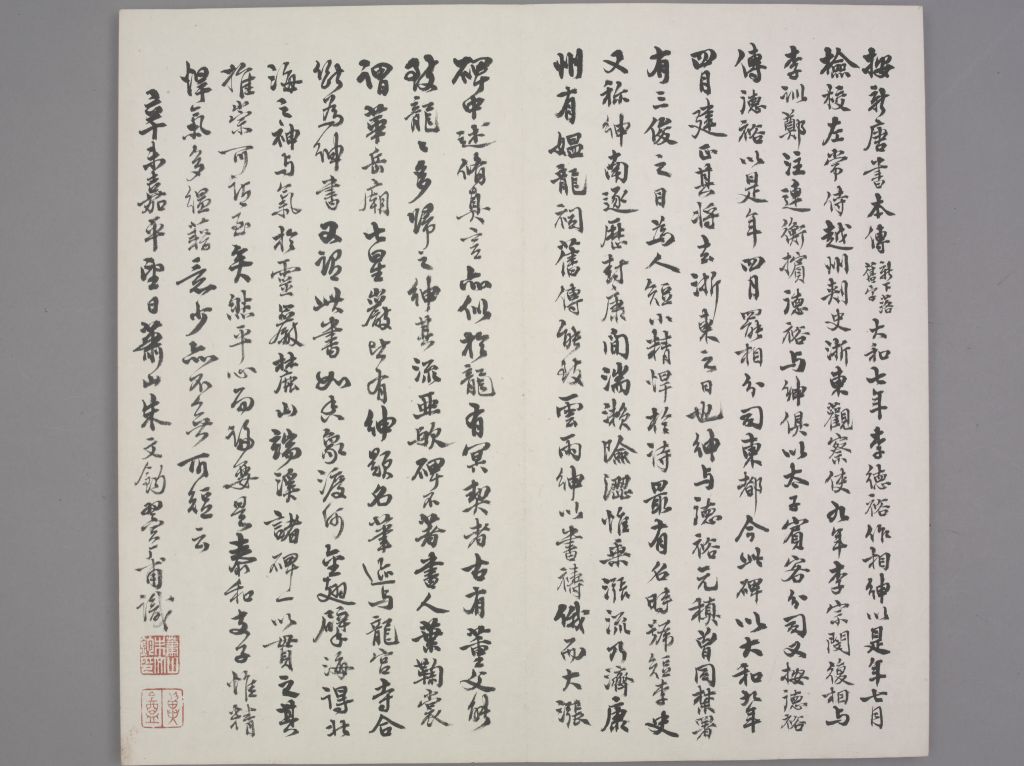 按新唐書本傳新下落舊字大和七年李德裕作相紳以是年七月
檢校左常侍越州刺史浙東觀察使九年李宗閔復相與
李訓鄭注連衡擯德裕与紳俱以太子賓客分司又按德裕
傳德裕以是年四月罷相分司東都今此碑以大和九年
四月建正其将去浙東之日也紳与德裕元稹曾同禁署
有三俊之目為人短小精悍於诗最有名時號短李史
又称紳南逐歷封康間湍瀨險澀惟乗漲流乃濟康
州有媼龍祠舊傳能致雲雨紳以書禱俄而大漲
碑中述脩真言亦似於龍有冥契者古有董父能
豢龍〻多歸之紳其流亞歟碑不著書人葉鞠裳
謂華岳廟七星巖皆有紳題名筆迹与龍宮寺合
斷為紳書又謂此書如香象渡河金翅擘海得北
海之神与氣於靈巖麓山端溪諸碑一以貫之其
推崇可謂至矣然平心而論要是泰和支子惟精
悍氣多縕藉意少亦不無可短云
辛未嘉平望日蕭山朱文鈞翼盦甫識
蕭山朱文鈞印
翼盦